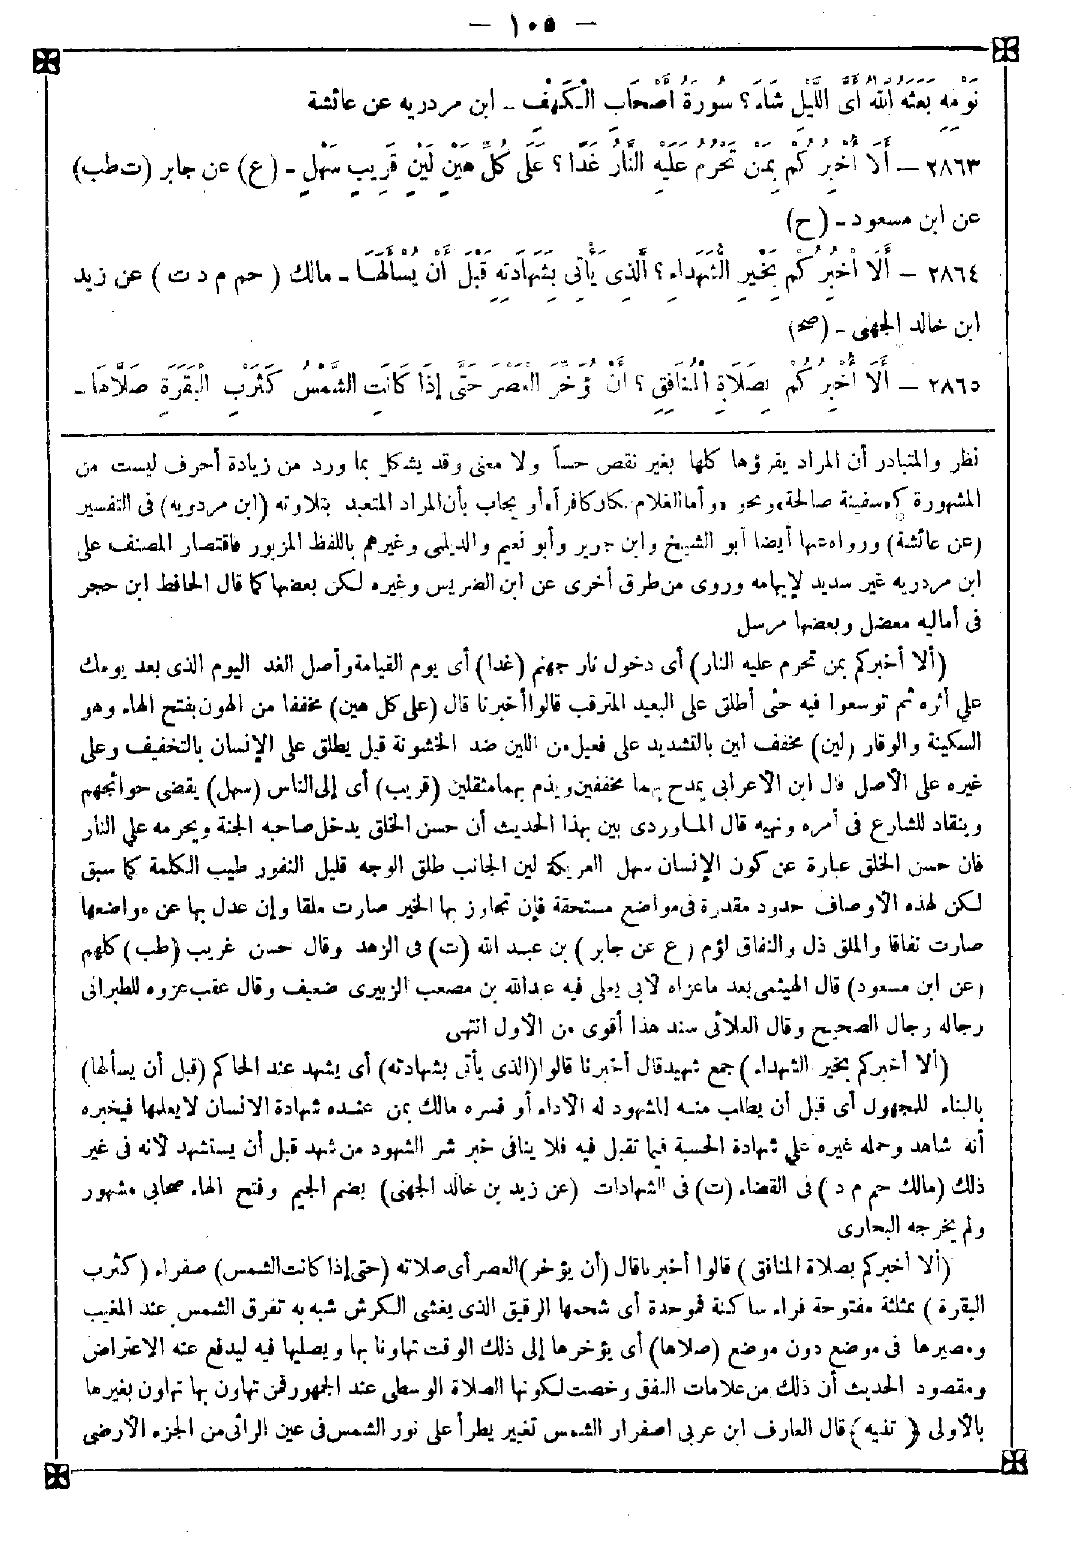 — ١٠٥ —
نَوْمِهِ بَعَثَهُ اللهُ أَىَّ اللَّيْلِ شَاءَ؟ سُورَةُ أَصْحَابِ الْكَهْفِ - ابن مردويه عن عائشة
٢٨٦٣ — أَلَا أُخْبِرُكُمْ بِمَنْ تَحْرُمُ عَلَيْهِ النَّارُ غَدًا؟ عَلَى كُلِّ هَيْنٍ لَيْنٍ قَرِيبٍ سَهْلٍ - (ع) عن جابر (ت طب)
عن ابن مسعود - (ح)
٢٨٦٤ — أَلَا أُخْبِرُكُمْ بِخَيْرِ الشُّهَدَاءِ؟ الَّذِى يَأْتِى بِشَهَادَتِهِ قَبْلَ أَنْ يُسْأَلَهَا - مالك (حم م د ت) عن زيد
ابن خالد الجهنى - (صح)
٢٨٦٥ — أَلَا أُخْبِرُكُمْ بِصَلَاةِ الْمُنَافِقِ؟ أَنْ يُؤَخِّرَ الْعَصْرَ حَتَّى إِذَا كَانَتِ الشَّمْسُ كَثَرْبِ الْبَقَرَةِ صَلَّاهَا -
نظر والمتبادر أن المراد يقرؤها كلها بغير نقص حساً ولا معنى وقد يشكل بما ورد من زيادة أحرف ليست من
المشهورة ك«سفينة صالحة» ونحو «وأما الغلام فكان كافراً» أو يجاب بأن المراد المتعبد بتلاوته (ابن مردويه) فى التفسير
(عن عائشة) ورواه عنها أيضا أبو الشيخ وابن جرير وأبو نعيم والديلمى وغيرهم باللفظ المزبور فاقتصار المصنف على
ابن مردويه غير سديد لإيهامه وروى من طرق أخرى عن ابن الضريس وغيره لكن بعضها كما قال الحافظ ابن حجر
فى أماليه معضل وبعضها مرسل
(ألا أخبركم بمن تحرم عليه النار) أى دخول نار جهنم (غدا) أى يوم القيامة وأصل الغد اليوم الذى بعد يومك
على أثره ثم توسعوا فيه حتى أطلق على البعيد المترقب قالوا أخبرنا قال (على كل هين) مخففا من الهون بفتح الهاء وهو
السكينة والوقار (لين) مخفف لين بالتشديد على فعيل من اللين ضد الخشونة قيل يطلق على الإنسان بالتخفيف وعلى
غيره على الأصل قال ابن الأعرابى يمدح بهما مخففين ويذم بهما مثقلين (قريب) أى إلى الناس (سهل) يقضى حوائجهم
وينقاد للشارع فى أمره ونهيه قال الماوردى بين بهذا الحديث أن حسن الخلق يدخل صاحبه الجنة ويحرمه على النار
فان حسن الخلق عبارة عن كون الإنسان سهل العريكة لين الجانب طلق الوجه قليل النفور طيب الكلمة كما سبق
لكن لهذه الأوصاف حدود مقدرة فى مواضع مستحقة فإن تجاوز بها الخير صارت ملقا وإن عدل بها عن مواضعها
صارت نفاقا والملق ذل والنفاق لؤم (ع عن جابر) بن عبد الله (ت) فى الزهد وقال حسن غريب (طب) كلهم
(عن ابن مسعود) قال الهيثمى بعد ما عزاه لأبى يعلى فيه عبدالله بن مصعب الزبيرى ضعيف وقال عقب عزوه للطبرانى
رجاله رجال الصحيح وقال العلائى سند هذا أقوى من الأول انتهى
(ألا أخبركم بخير الشهداء) جمع شهيد قال أخبرنا قالوا (الذى يأتى بشهادته) أى يشهد عند الحاكم (قبل أن يسألها)
بالبناء للمجهول أى قبل أن يطلب منه المشهود له الأداء أو فسره مالك بمن عنده شهادة الانسان لا يعلمها فيخبره
أنه شاهد وحمله غيره على شهادة الحسبة فيما تقبل فيه فلا ينافى خبر شر الشهود من شهد قبل أن يستشهد لأنه فى غير
ذلك (مالك حم م د) فى القضاء (ت) فى الشهادات (عن زيد بن خالد الجهنى) بضم الجيم وفتح الهاء صحابى مشهور
ولم يخرجه البخارى
(ألا أخبركم بصلاة المنافق) قالوا أخبرنا قال (أن يؤخر) العصر أى صلاته (حتى إذا كانت الشمس) صفراء (كثرب
البقرة) بمثلثة مفتوحة فراء ساكنة فموحدة أى شحمها الرقيق الذى يغشى الكرش شبه به تفرق الشمس عند المغيب
ومصيرها فى موضع دون موضع (صلاها) أى يؤخرها إلى ذلك الوقت تهاونا بها ويصليها فيه ليدفع عنه الاعتراض
ومقصود الحديث أن ذلك من علامات النفاق وخصت لكونها الصلاة الوسطى عند الجمهور فمن تهاون بها تهاون بغيرها
بالأولى (تنبيه) قال العارف ابن عربى اصفرار الشمس تغيير يطرأ على نور الشمس فى عين الرائى من الجزء الأرضى